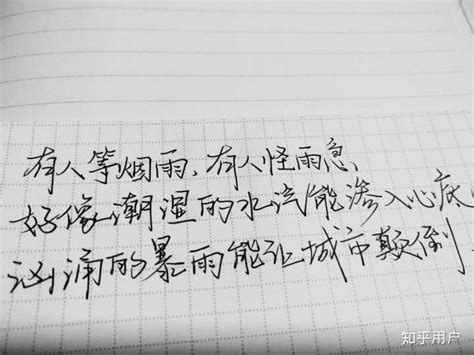 有人等烟雨,有人怪雨急,
好像潮湿的水汽能渗入心底
汹涌的暴雨能让城市颠倒.
知乎用户